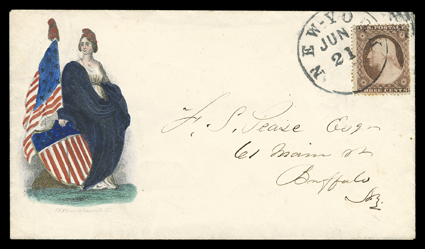 NEW-YO
JUN
21
THREE CENTS
F. S. Pease Esqr
61 Main St
Buffalo